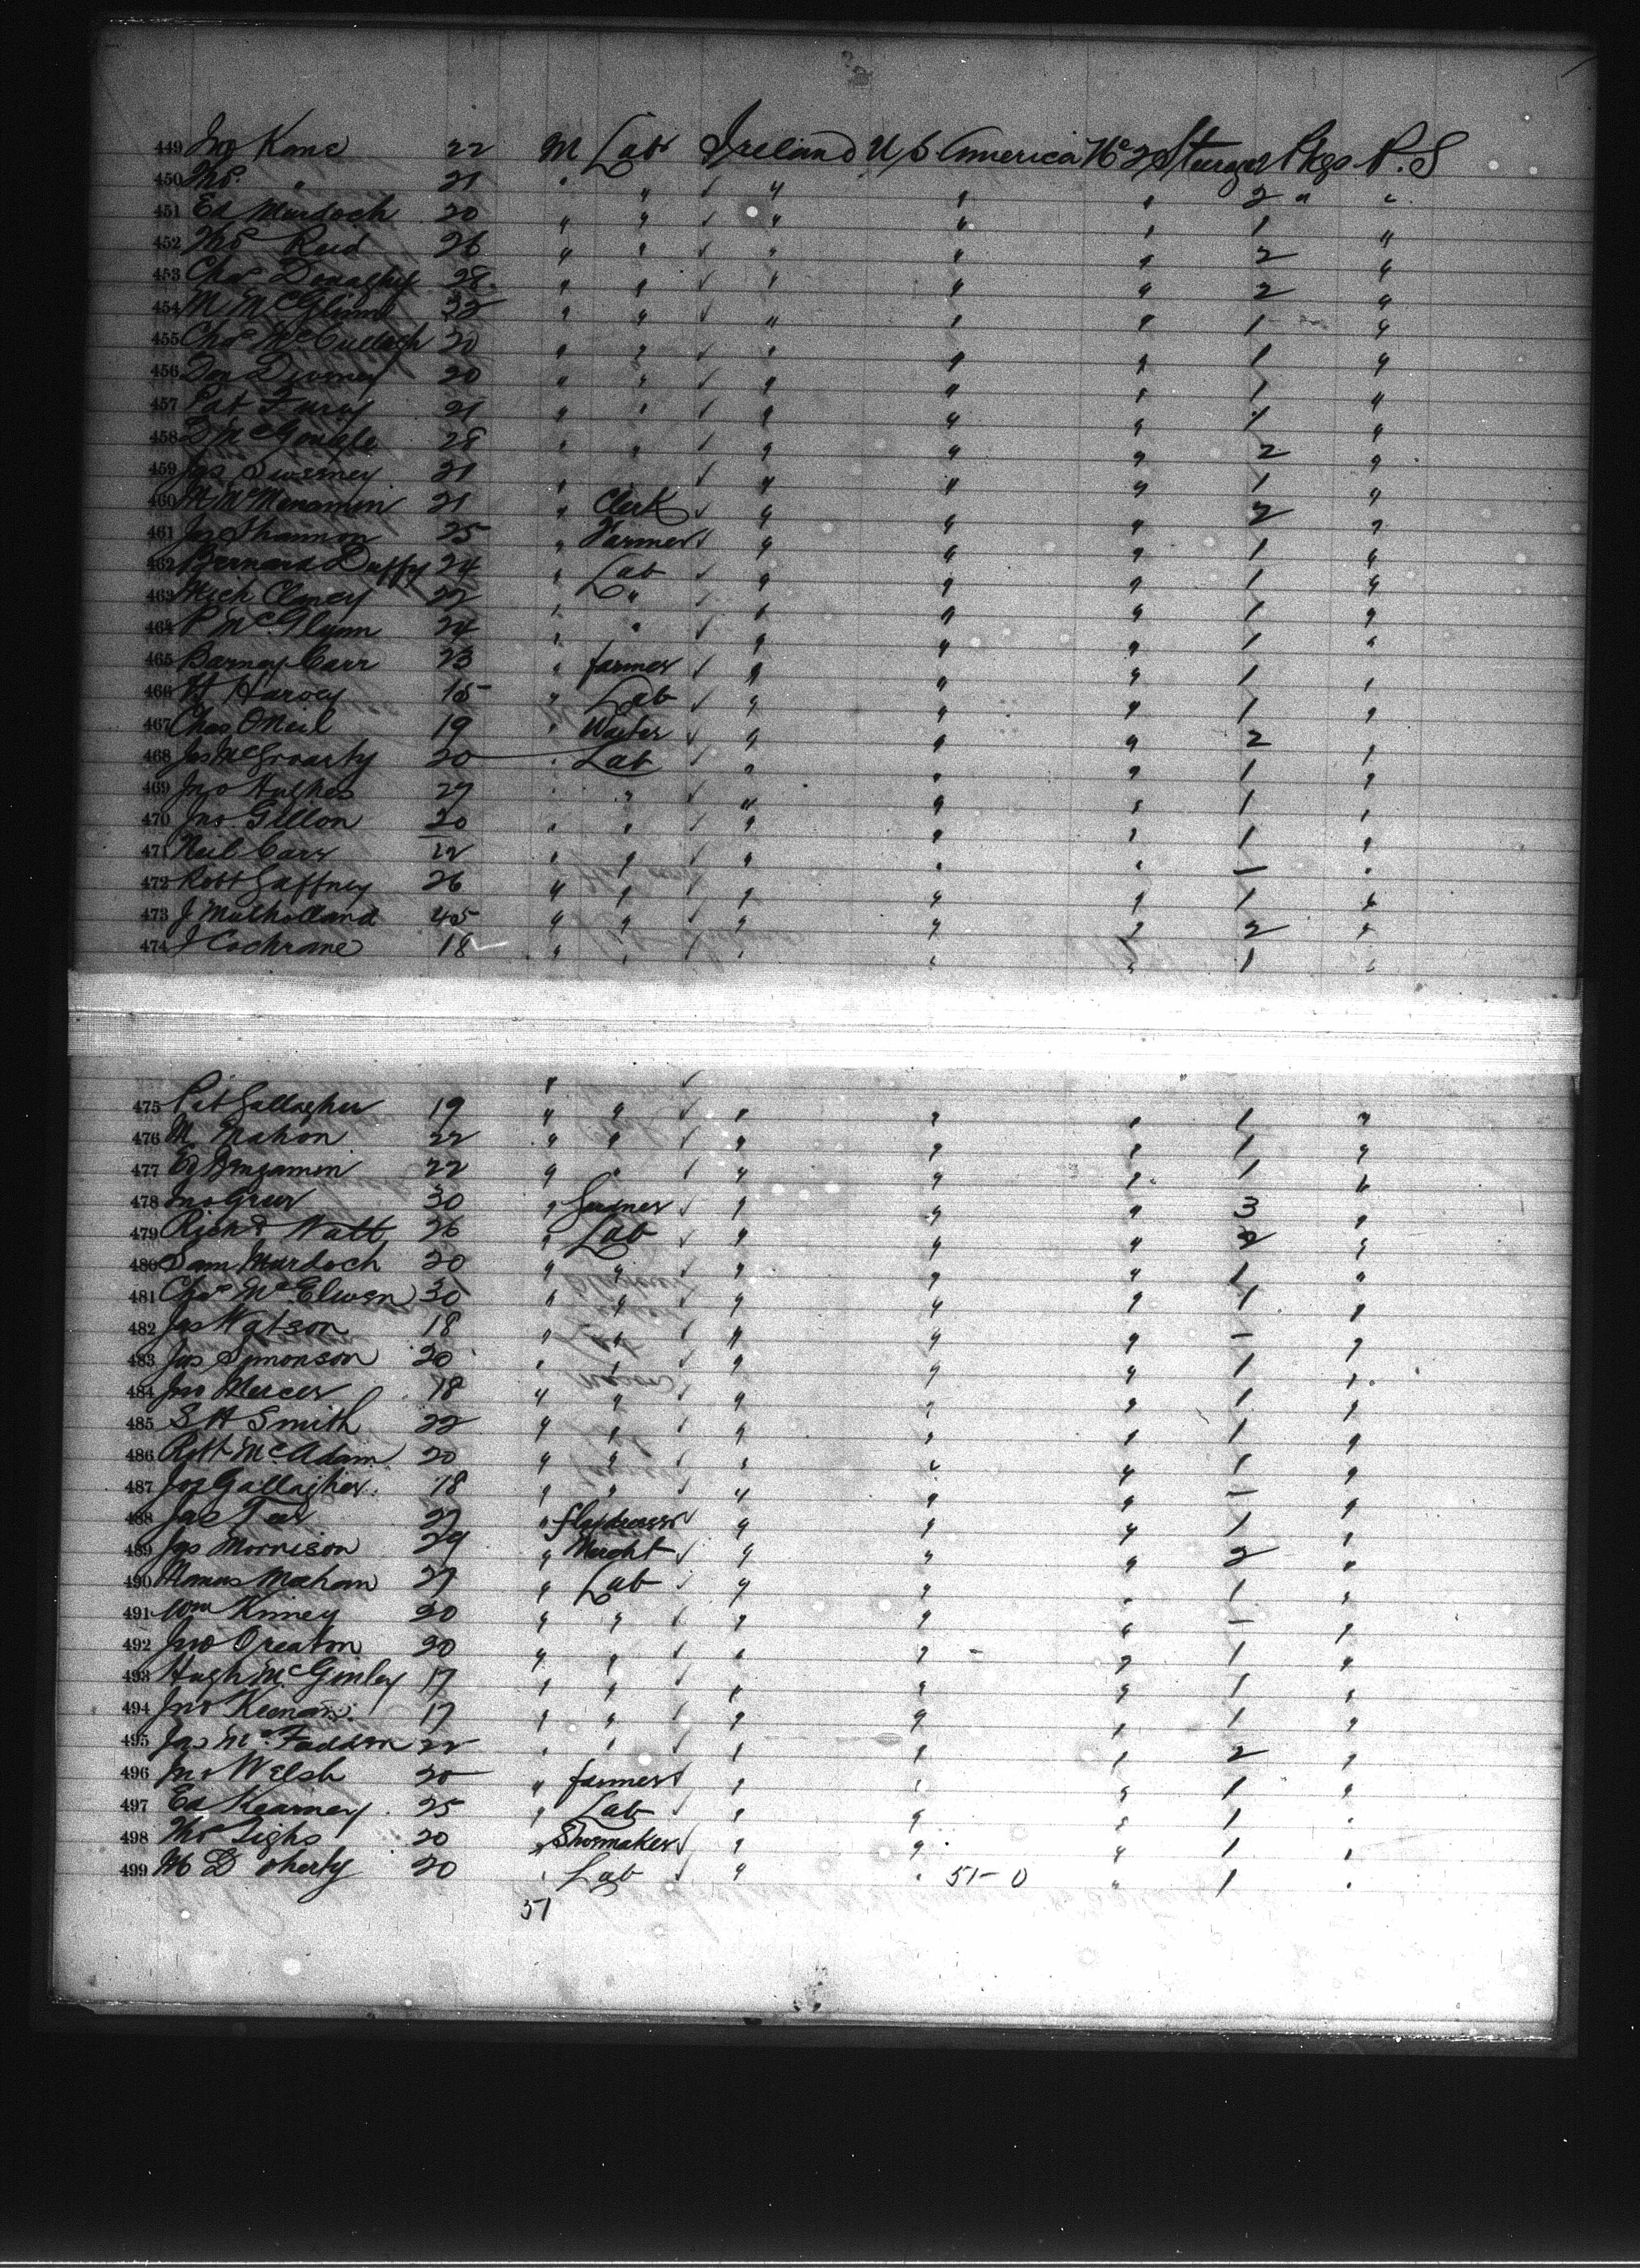 449 Jno Kane 22 M Lab Ireland U S America No 2 Steerage Pkgs P.S
450 Thos " 21 " " ✓ " " " 2 " "
451 Ed Murdoch 20 " " ✓ " " " 1 "
452 Thos Reid 26 " " ✓ " " " 2 "
453 Chas Donaghy 28 " " ✓ " " " 2 "
454 M McGlinn 32 " " ✓ " " " 1 "
455 Chas McCullagh 20 " " ✓ " " " 1 "
456 Dan Diveney 20 " " ✓ " " " 1 "
457 Pat Furey 21 " " ✓ " " " 1 "
458 D McGonigle 28 " " ✓ " " " 2 "
459 Jas Sweeney 21 " " ✓ " " " 1 "
460 H McMenamin 21 " Clerk ✓ " " " 2 "
461 Jas Shannon 25 " Farmer ✓ " " " 1 "
462 Bernard Duffy 24 " Lab ✓ " " " 1 "
463 Mich Clancy 22 " " ✓ " " " 1 "
464 P McGlynn 24 " " ✓ " " " 1 "
465 Barney Carr 23 " farmer ✓ " " " 1 "
466 H Harvey 18 " Lab ✓ " " " 1 "
467 Chas ONeil 19 " Waiter ✓ " " " 2 "
468 Jas McGroarty 20 " Lab ✓ " " " 1 "
469 Jno Hughes 27 " " ✓ " " " 1 "
470 Jno Gillon 20 " " ✓ " " " 1 "
471 Neil Carr 12 " " ✓ " " " — "
472 Robt Gaffney 26 " " ✓ " " " 1 "
473 J Mulholland 45 " " " " " 2 "
474 J Cochrane 18 " " ✓ " " " 1 "
475 Pat Gallagher 19 " " ✓ " " " 1 "
476 M. Mahon 22 " " ✓ " " " 1 "
477 Ed Bengamin 22 " " ✓ " " " 1 "
478 Jno Greer 30 " Gardner ✓ " " " 3 "
479 Richd Watt 26 " Lab ✓ " " " 2 "
480 Sam Murdoch 20 " " ✓ " " " 1 "
481 Chas McElwen 30 " " ✓ " " " 1 "
482 Jas Watson 18 " " ✓ " " " — "
483 Jas Simonson 20 " " ✓ " " " 1 "
484 Jno Mercer 18 " " ✓ " " " 1 "
485 S H Smith 22 " " ✓ " " " 1 "
486 Robt McAdam 20 " " ✓ " " " 1 "
487 Jos Gallagher 18 " " ✓ " " " — "
488 Jas Teer 27 " flaxdresser " " " 1 "
489 Jas Morrison 29 " Mercht ✓ " " " 2 "
490 Mahon 27 " Lab ✓ " " " 1 "
491 Wm Kinney 20 " " ✓ " " " — "
492 Jno 20 " " ✓ " " " 1 "
493 Hugh McGinley 17 " " ✓ " " " 1 "
494 Jno Keenan 17 " " ✓ " " " 1 "
495 Jas McFadden 22 " " ✓ " " " 2 "
496 Jno Welsh 20 " farmer ✓ " " " 1 "
497 Ed Kearney 25 " Lab ✓ " " " 1 "
498 Thos Tighe 20 " Shoemaker ✓ " " " 1 "
499 M Doherty 20 " Lab ✓ " " 51-0 " 1 "
51